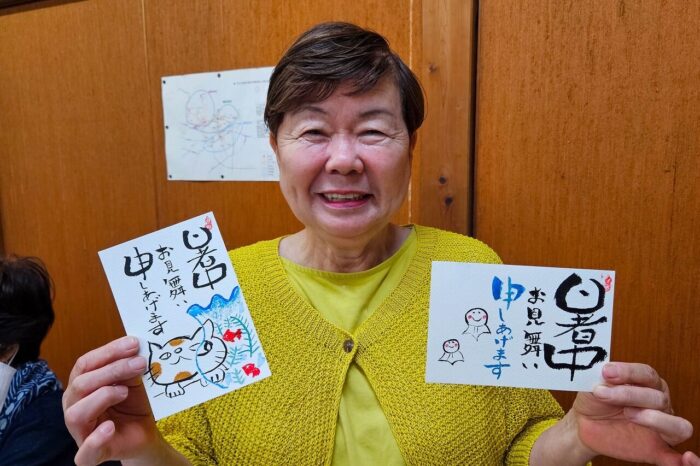 暑中
お見舞い
申しあげます
暑中
お見舞い
申しあげます